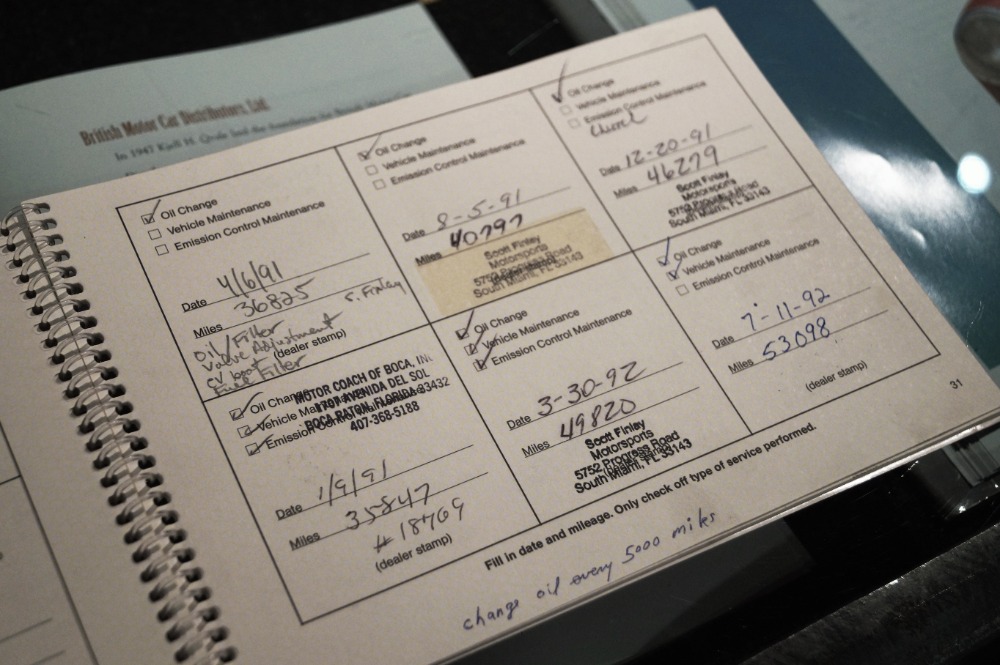 British Motor Car Distributors, Ltd.
In 1947 Kjell H. Qvale laid the foundation for British
Oil Change
Vehicle Maintenance
Emission Control Maintenance
Date 4/6/91
Miles 36825
S. Finlay
(dealer stamp)
Oil/Filter
Valve Adjustment
CV boot
Fuel Filter
Oil Change
Vehicle Maintenance
Emission Control Maintenance
Date 8-5-91
Miles 40797
Scott Finlay
Motorsports
5752 Progress Road
South Miami, FL 33143
Oil Change
Vehicle Maintenance
Emission Control Maintenance
Date 12-20-91
Miles 46279
Scott Finlay
Motorsports
5752 Progress Road
South Miami, FL 33143
Oil Change
Vehicle Maintenance
Emission Control Maintenance
MOTOR COACH OF BOCA, INC
1701 AVENIDA DEL SOL
BOCA RATON, FLORIDA 33432
407-368-5188
Date 1/9/91
Miles 35847
# 18769
(dealer stamp)
Oil Change
Vehicle Maintenance
Emission Control Maintenance
Date 3-30-92
Miles 49820
Scott Finlay
Motorsports
5752 Progress Road
(dealer stamp)
South Miami, FL 33143
Oil Change
Vehicle Maintenance
Emission Control Maintenance
Date 7-11-92
Miles 53098
(dealer stamp)
31
Fill in date and mileage. Only check off type of service performed.
change oil every 5000 miles